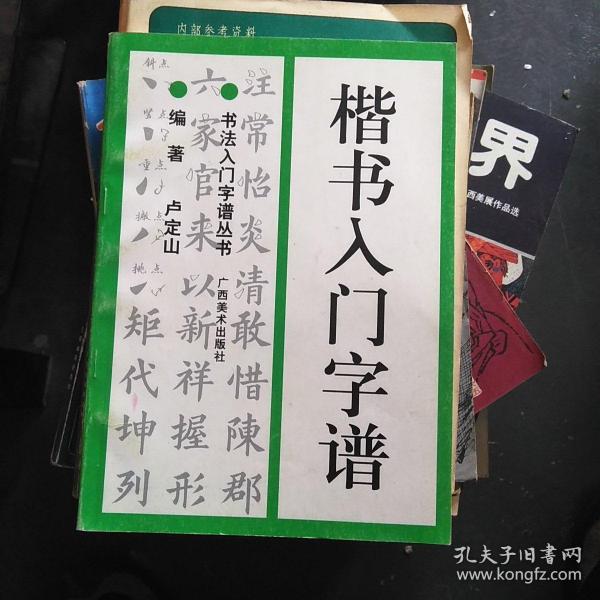 内部参考资料
楷书入门字谱
书法入门字谱丛书
广西美术出版社
编著 卢定山
斜点
竖点
重点
撇点
挑点
六 注
家 常
官 怡
来 炎
以 清
矩 新 敢
代 祥 惜
坤 握 陳
列 形 郡
界
西美展作品选
孔夫子旧书网
www.kongfz.com